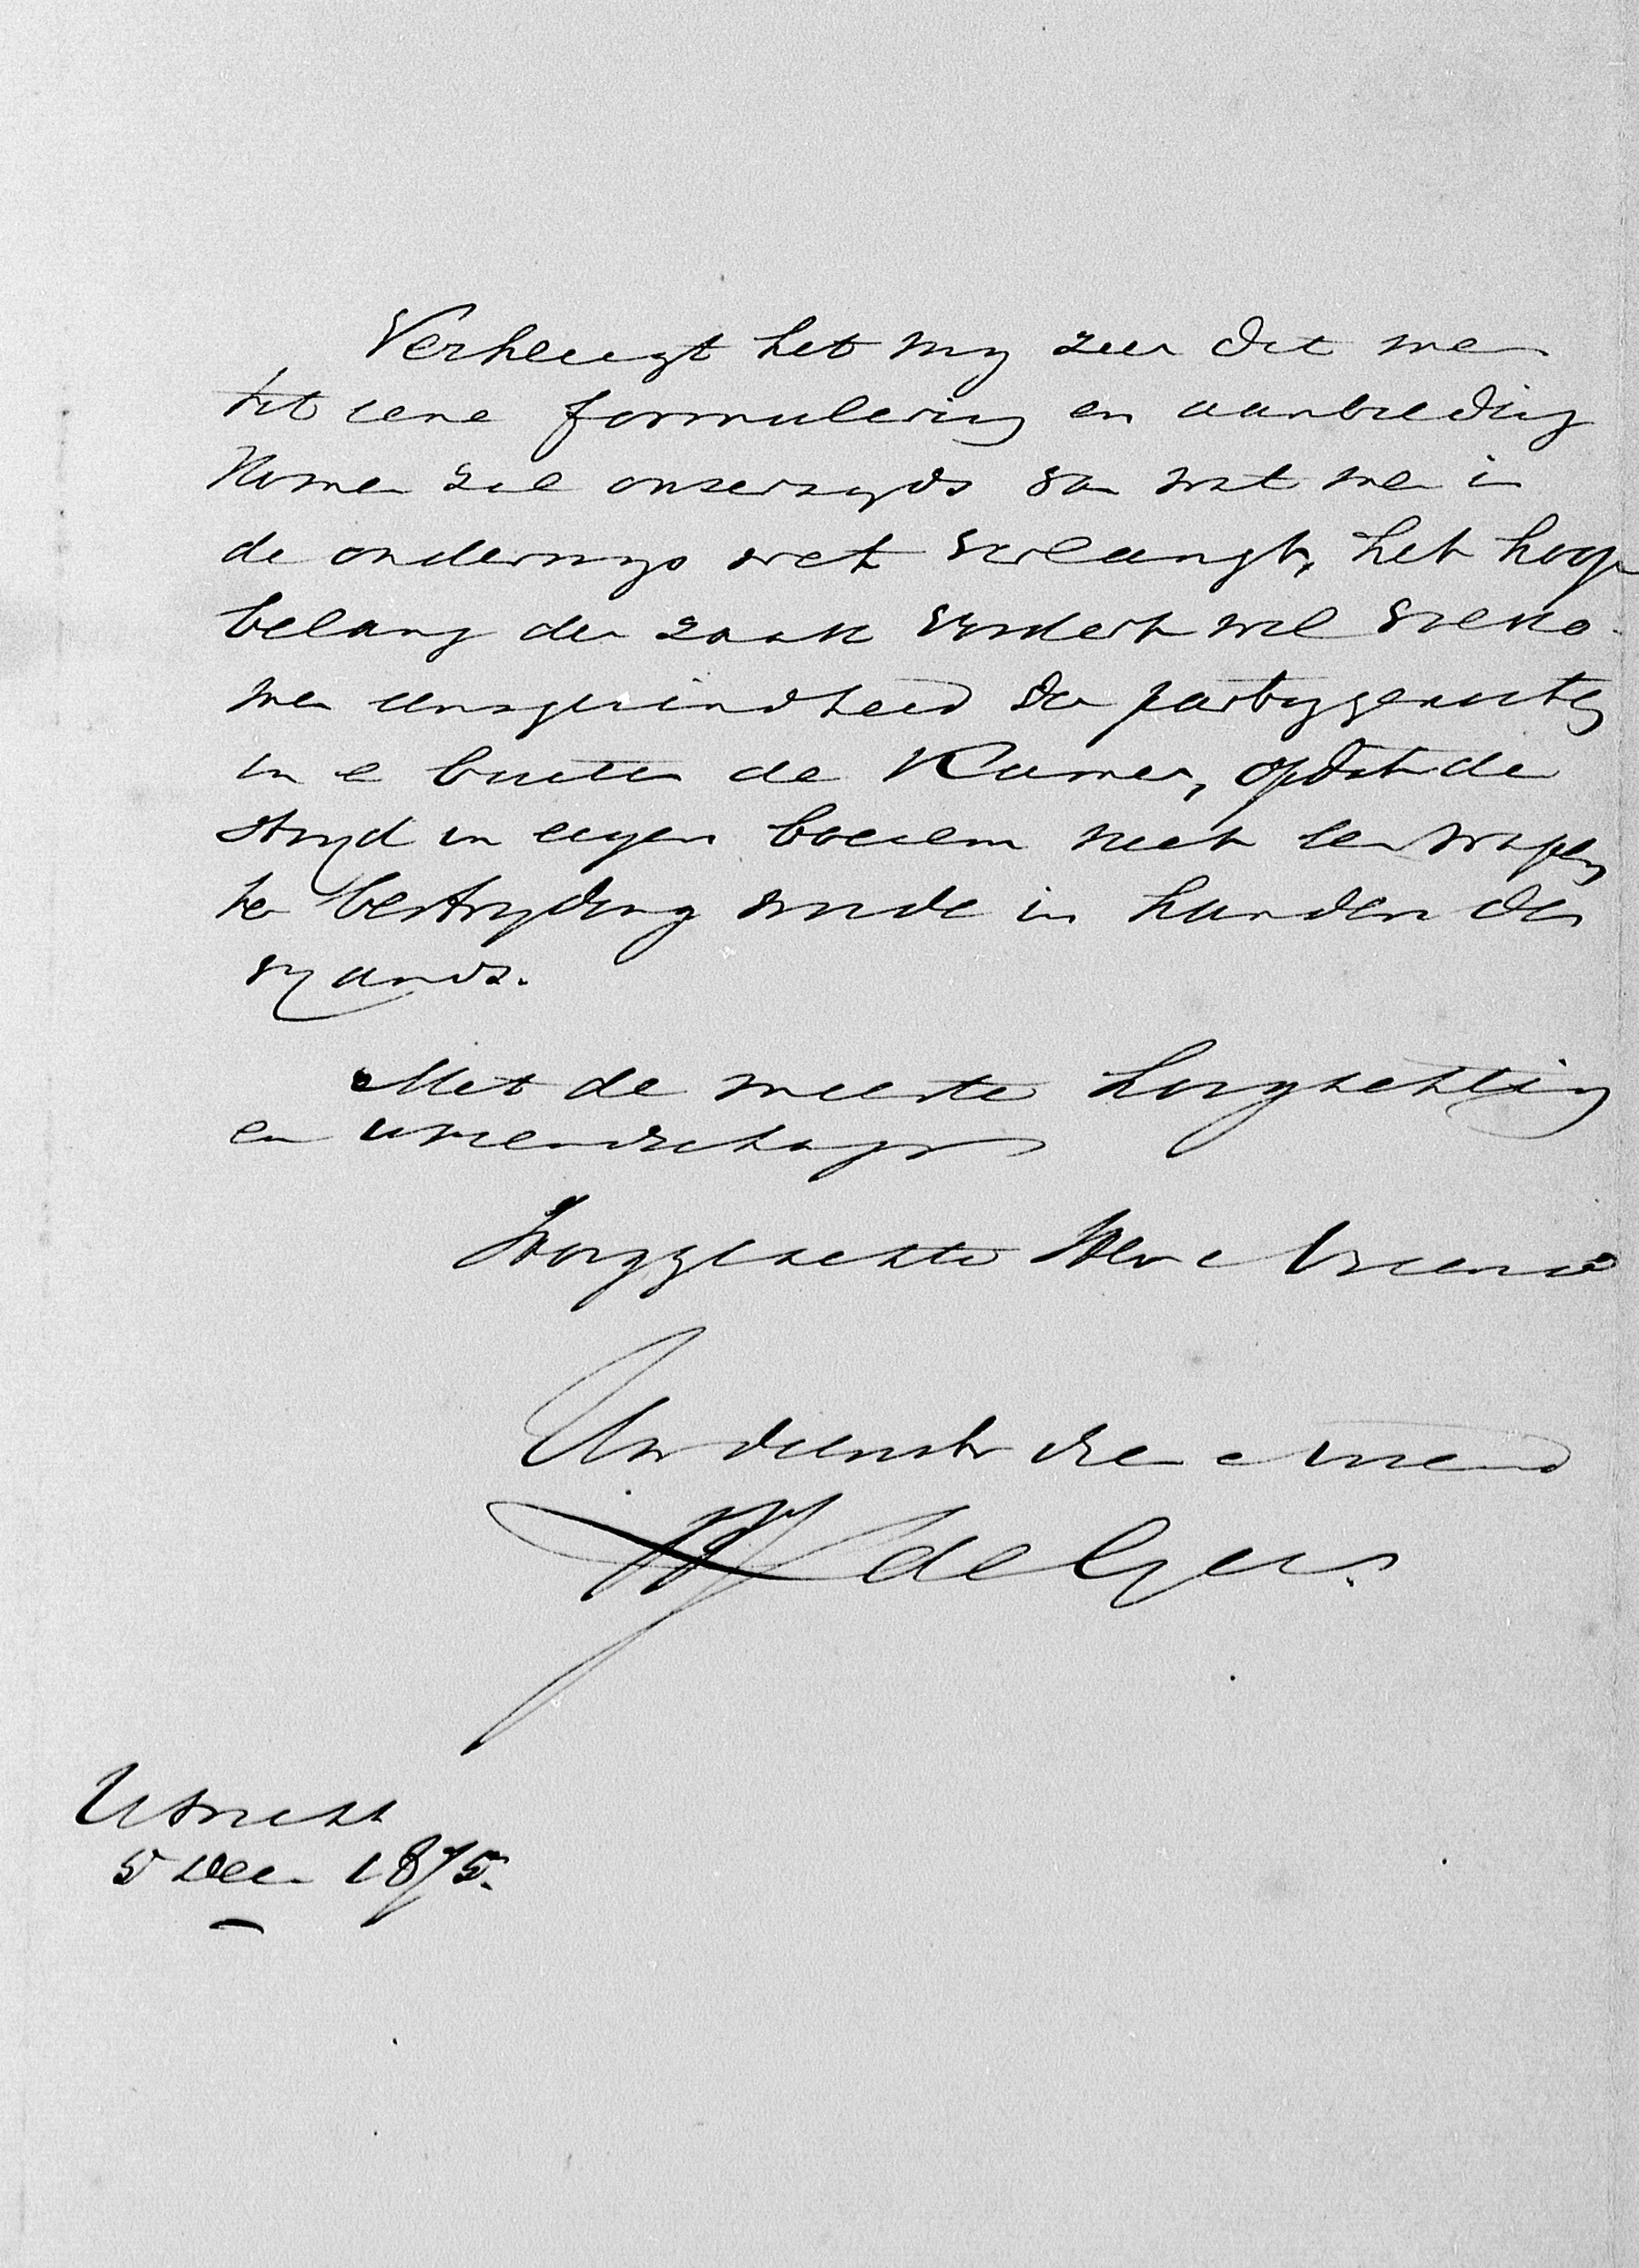 Verheugt het mij zeer dat men
tot eene formulering en aanbieding
komen zal onzerzijds van wat men in
de onderwijs wet verlangt, het hoog
belang der zaak vordert wel volko-
men eensgezindheid der partijgenooten
in e buiten de Kamer, opdat de
strijd in eigen boezem niet een wapen
ter bestrijding worde in handen des
vijands.
Met de meeste hoogachting
en vriendschap
Hooggeachte Heer e Vriend
Uw dienstv. dien. e vriend
de Geer.
Utrecht
5 Dec. 1875.